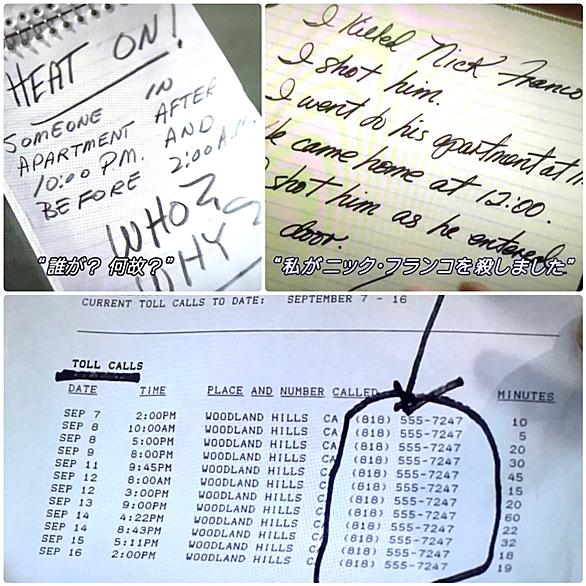 HEAT ON!
SOMEONE IN
APARTMENT AFTER
10:00 P.M. AND
BEFORE 2:00 A.M.
WHO?
WHY?
“誰が? 何故?”
I killed Nick Franco
I shot him.
I went to his apartment at
came home at 12:00.
shot him as he entered
door.
“私がニック・フランコを殺しました”
CURRENT TOLL CALLS TO DATE: SEPTEMBER 7 - 16
TOLL CALLS
DATE TIME PLACE AND NUMBER CALLED MINUTES
SEP 7 2:00PM WOODLAND HILLS CA (818) 555-7247 10
SEP 8 10:00AM WOODLAND HILLS CA (818) 555-7247 5
SEP 8 5:00PM WOODLAND HILLS CA (818) 555-7247 20
SEP 9 8:00PM WOODLAND HILLS CA (818) 555-7247 30
SEP 11 9:45PM WOODLAND HILLS CA (818) 555-7247 45
SEP 12 8:00AM WOODLAND HILLS CA (818) 555-7247 15
SEP 12 3:00PM WOODLAND HILLS CA (818) 555-7247 20
SEP 13 9:00PM WOODLAND HILLS CA (818) 555-7247 60
SEP 14 4:22PM WOODLAND HILLS (818) 555-7247 22
SEP 14 8:43PM WOODLAND HILLS (818) 555-7247 32
SEP 15 5:11PM WOODLAND HILLS (818) 555-7247 18
SEP 16 2:00PM WOODLAND HILLS (818) 555-7247 19